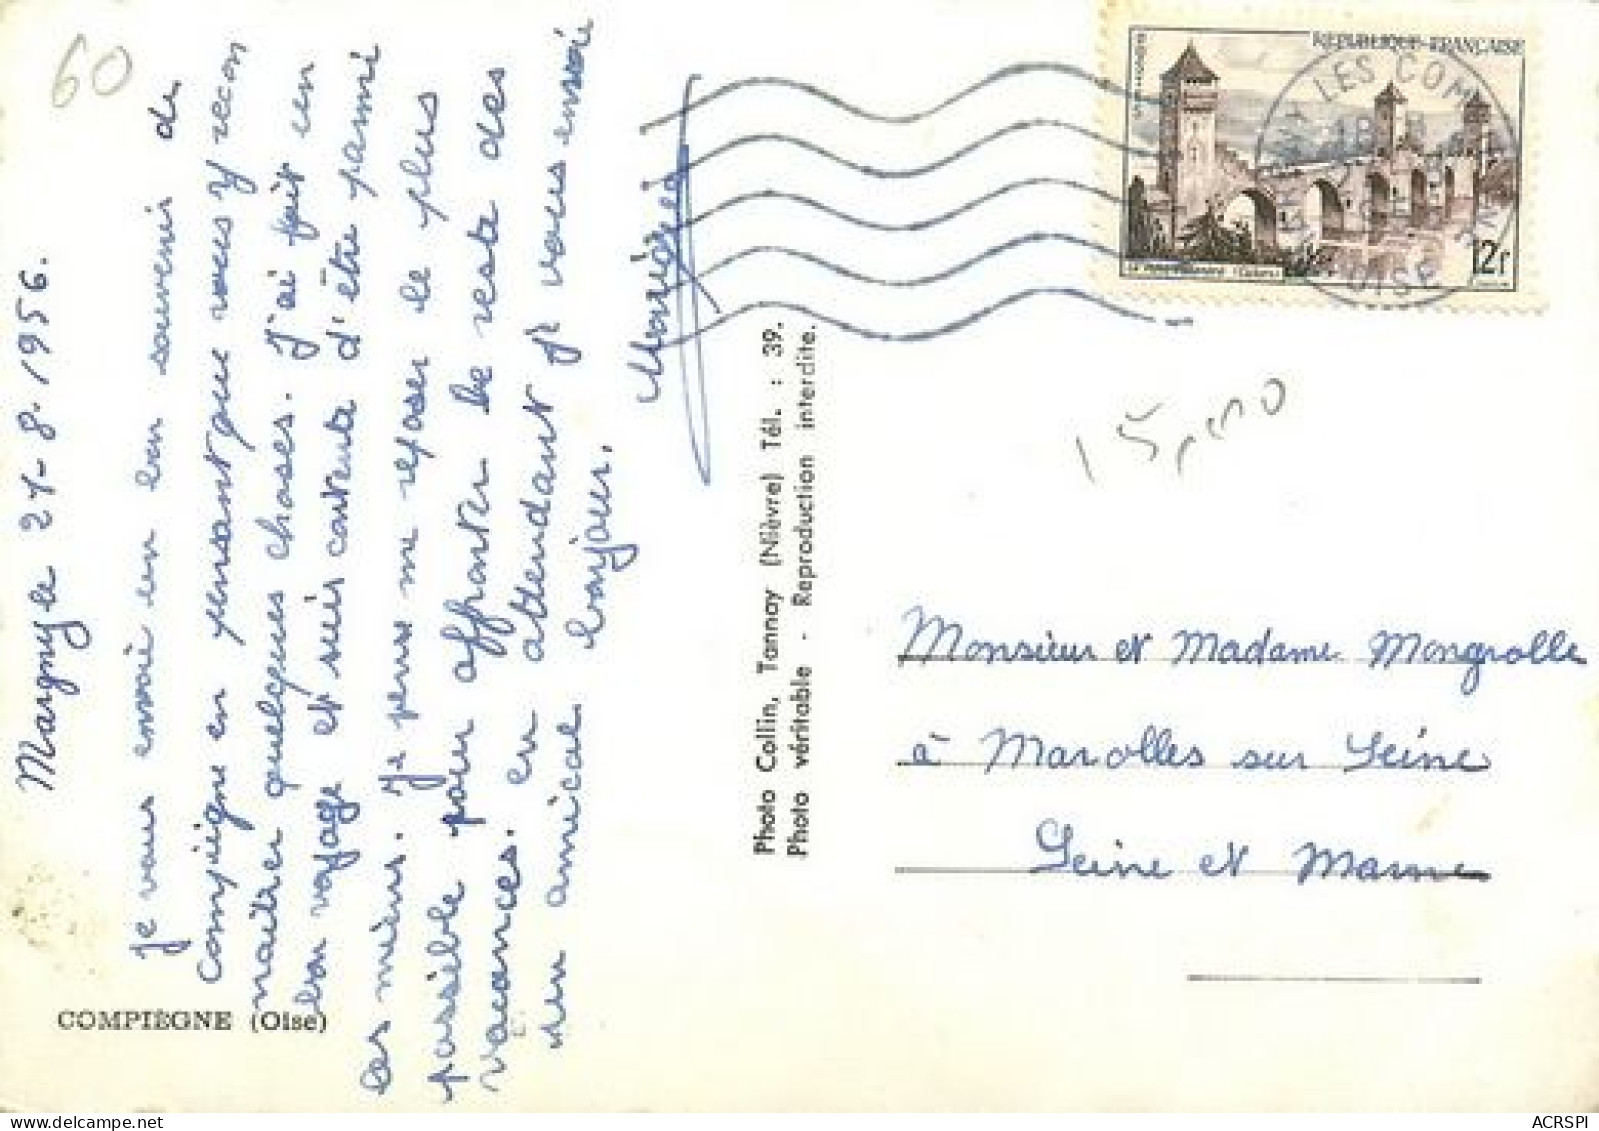 60
Margny le 21-8.1956.
je vous envoie un bon souvenir de
Compiègne en pensant que vous y recon
naitrer quelques choses. J'ai fait un
bon voyage et suis contente d'être parmi
les miens. Je pense me reposer le plus
possible pour affronter le reste des
vacances. en attendant je vous envoie
un amical bonjour.
COMPIÈGNE (Oise)
Photo Collin, Tannay (Nièvre) Tél. : 39.
Photo véritable - Reproduction interdite.
REPUBLIQUE FRANÇAISE
12f
LES COM
OISE
Monsieur et Madame Mongrolle
à Marolles sur Seine
Seine et Marne
ACRSPI